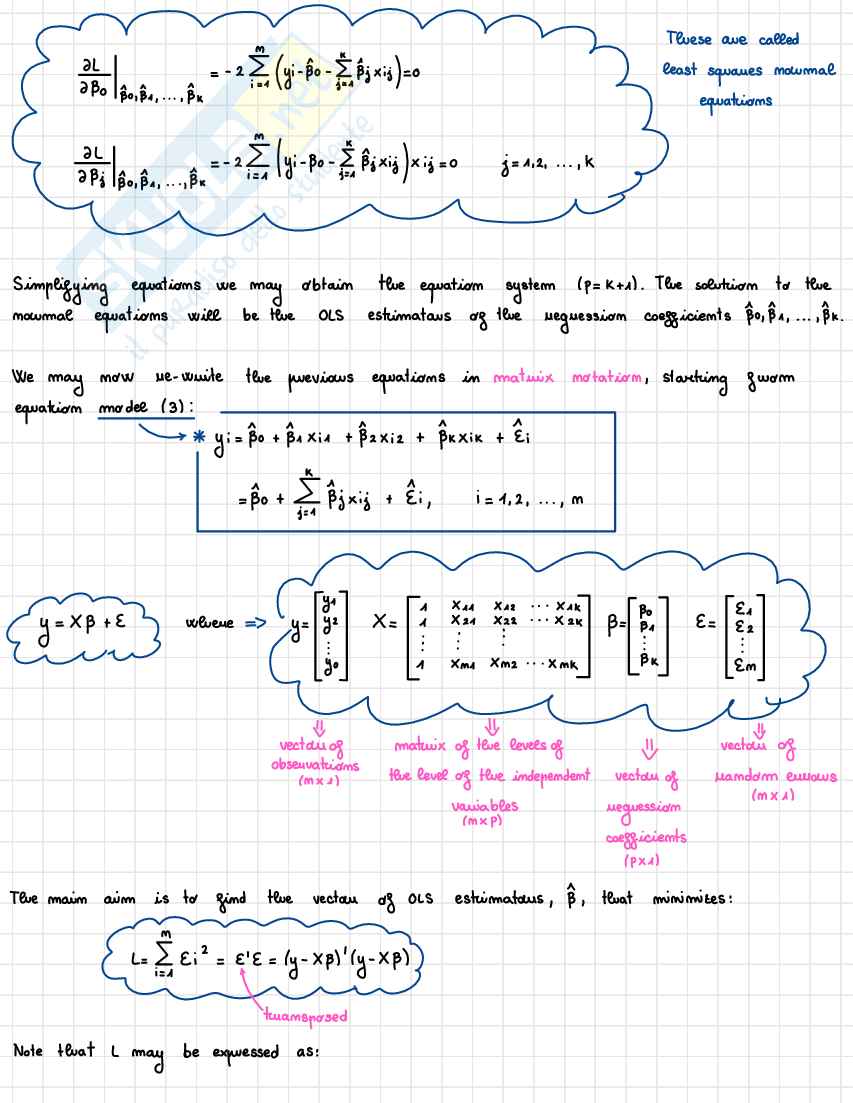 ∂L/∂β₀ |β̂₀,β̂₁,...,β̂ₖ = -2 Σᵢ₌₁ⁿ (yi - β̂₀ - Σⱼ₌₁ᵏ β̂j xij) = 0
These are called
least squares normal
equations
∂L/∂βj |β̂₀,β̂₁,...,β̂ₖ = -2 Σᵢ₌₁ⁿ (yi - β₀ - Σⱼ₌₁ᵏ β̂j xij) xij = 0 j = 1,2, ..., k
Skuola.net
il paradiso dello studente
Simplifying equations we may obtain the equation system (p = k+1). The solution to the
normal equations will be the OLS estimators of the regression coefficients β̂₀, β̂₁, ..., β̂ₖ.
We may now re-write the previous equations in matrix notation, starting from
equation model (3):
* yi = β̂₀ + β̂₁ xi1 + β̂₂ xi2 + β̂ₖ xik + ε̂i
= β̂₀ + Σⱼ₌₁ᵏ β̂j xij + ε̂i, i = 1,2, ..., n
y = Xβ + ε where => y = [y1 y2 ... y0] X = [1 x11 x12 ... x1k; 1 x21 x22 ... x2k; ⋮ ⋮ ⋮; 1 xn1 xn2 ... xnk] β = [β0 β1 ⋮ βk] ε = [ε1 ε2 ⋮ εn]
⇓ vector of
observations
(n x 1)
⇓ matrix of the levels of
the level of the independent
variables
(n x p)
⇓ vector of
regression
coefficients
(p x 1)
⇓ vector of
random errors
(n x 1)
The main aim is to find the vector of OLS estimators, β̂, that minimizes:
L = Σᵢ₌₁ⁿ εi² = ε'ε = (y - Xβ)'(y - Xβ)
transposed
Note that L may be expressed as: